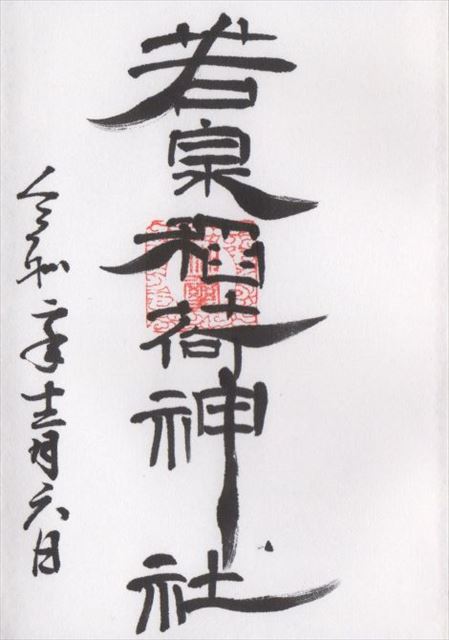 若泉稲荷神社
令和二年十二月六日